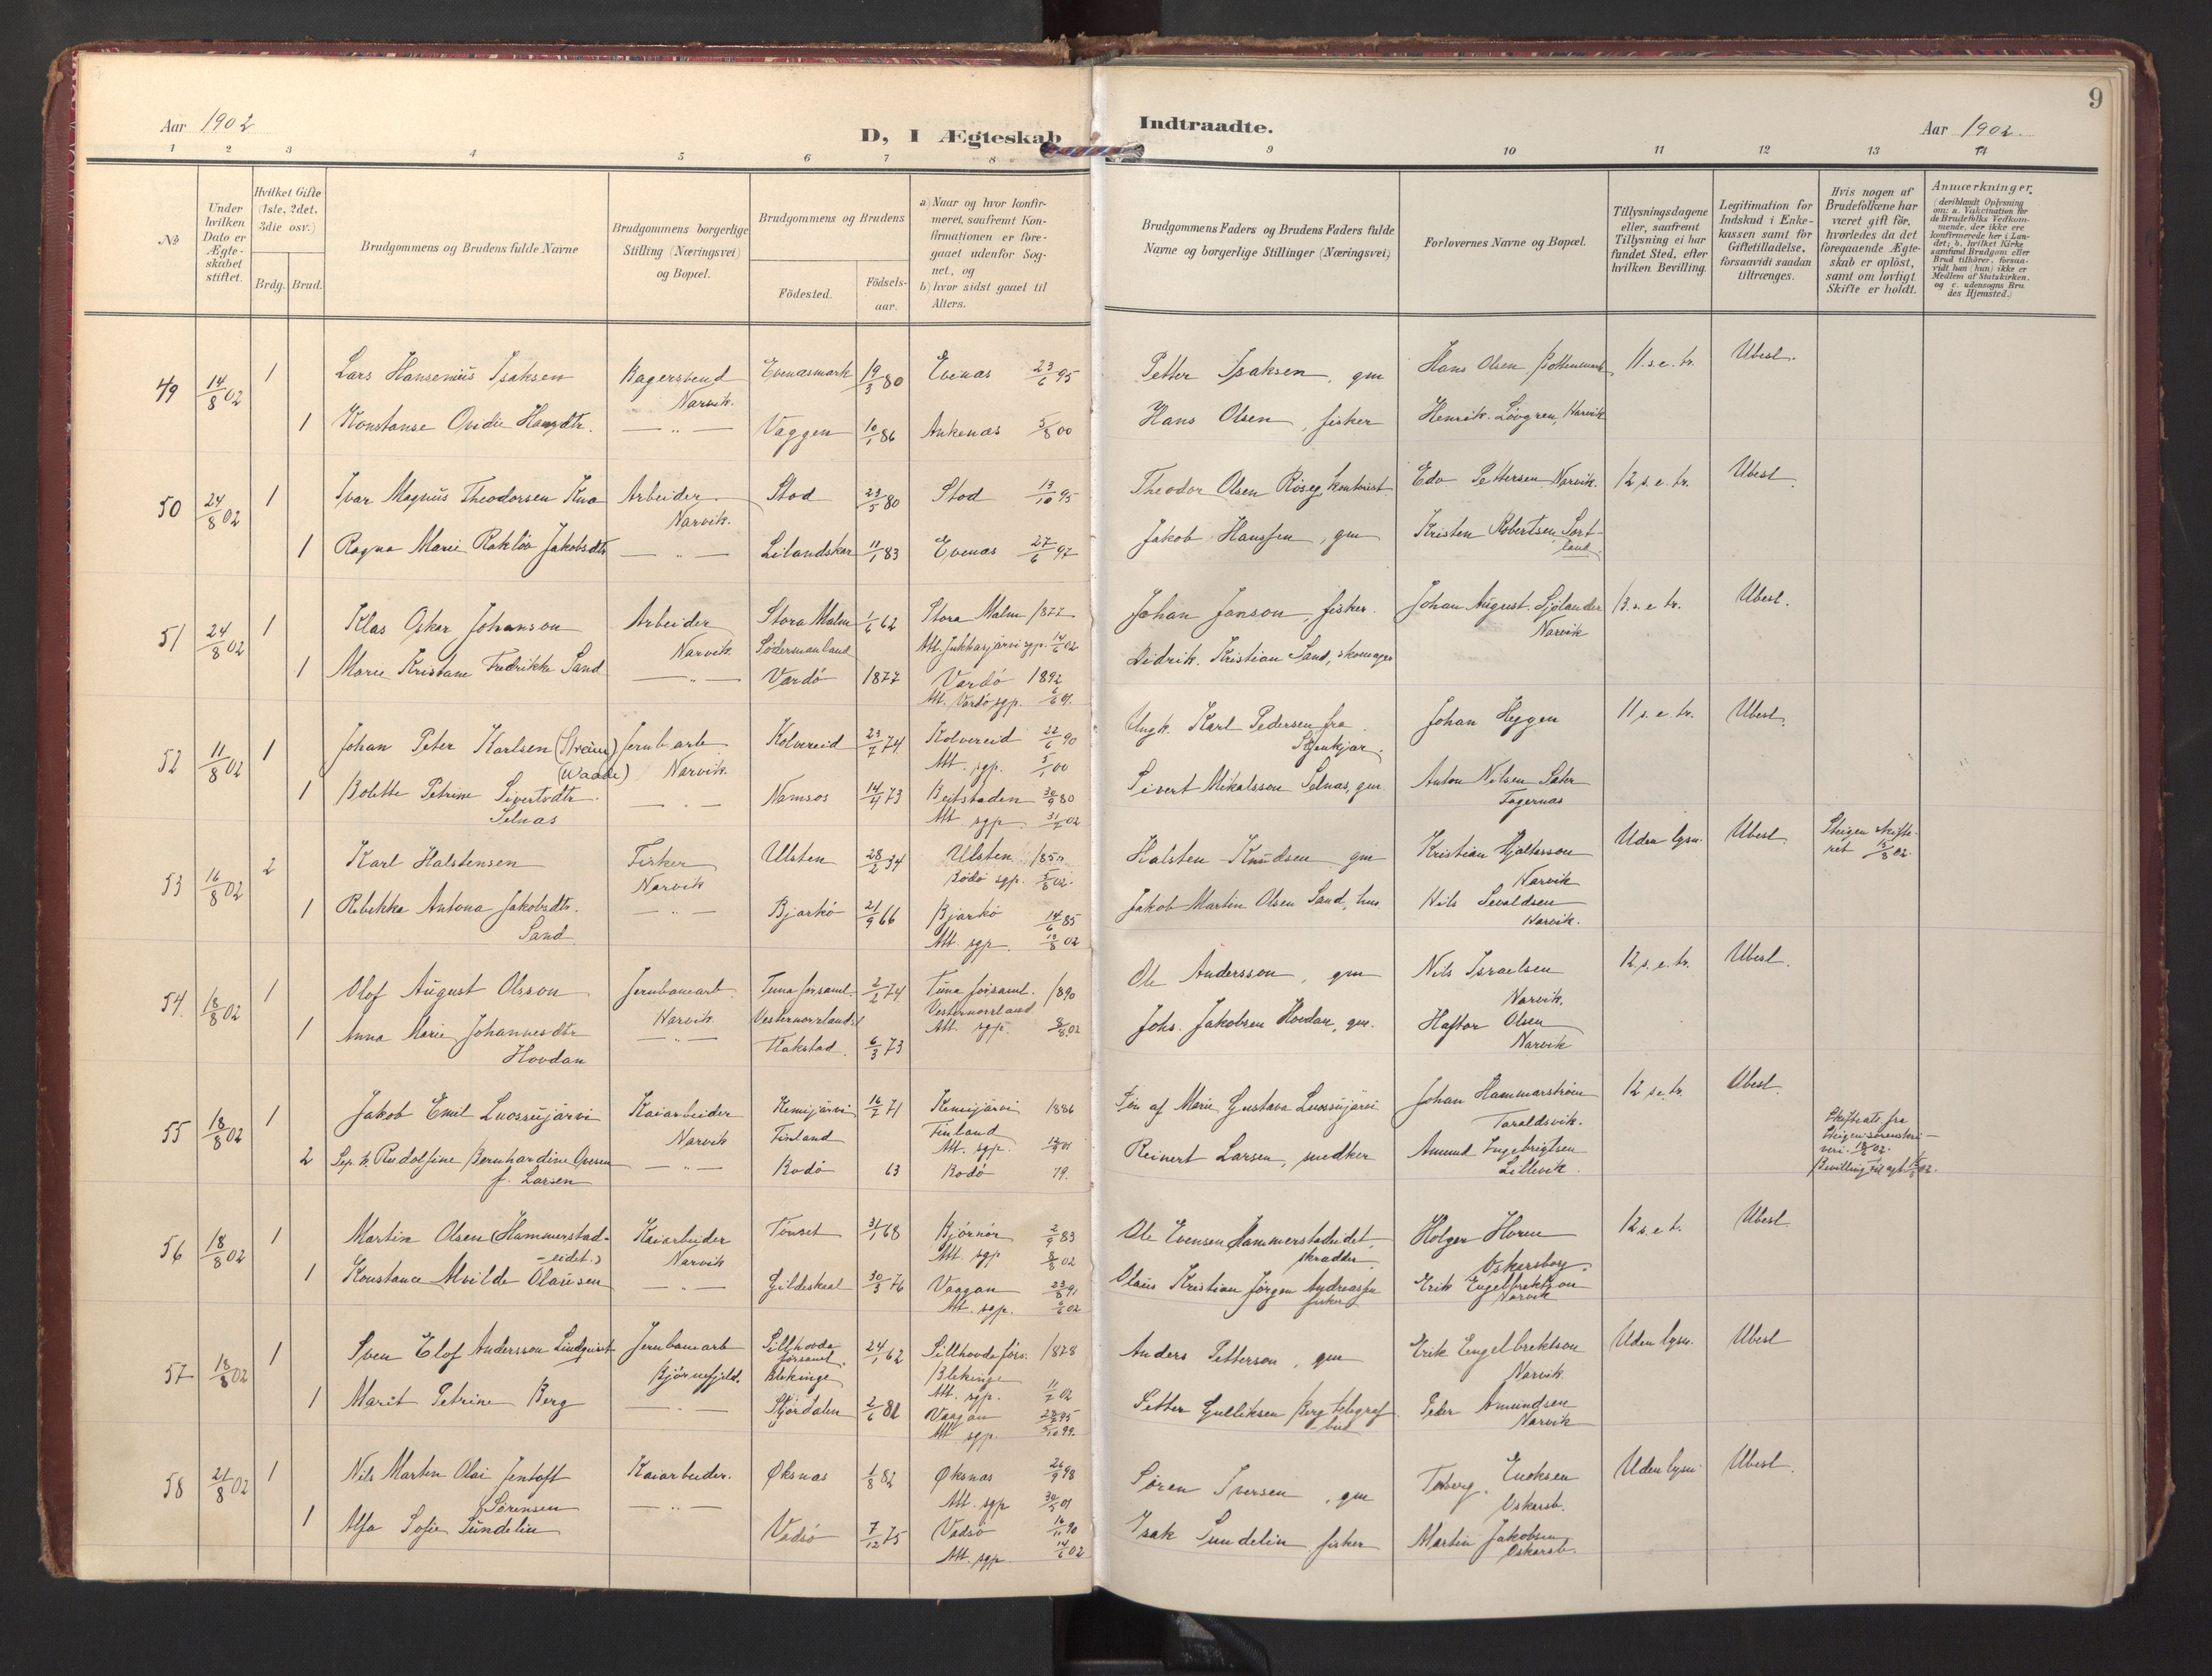 9
Aar 1902
D, I Ægteskab
Indtraadte.
Aar 1902.
1 2 3 4 5 6 7 8 9 10 11 12 13 14
No
Under hvilken Dato er Ægteskabet stiftet.
Hvilket Gifte (1ste, 2det, 3die osv.)
Brdg. Brud.
Brudgommens og Brudens fulde Navne
Brudgommens borgerlige Stilling (Næringsvei) og Bopæl.
Brudgommens og Brudens
Födested.
Födselsaar.
a) Naar og hvor konfirmeret, saafremt Konfirmationen er foregaaet udenfor Sognet, og
b) hvor sidst gaaet til Alters.
Brudgommens Faders og Brudens Faders fulde Navne og borgerlige Stillinger (Næringsvei)
Forlovernes Navne og Bopæl.
Tillysningsdagene eller, saafremt Tillysning ei har fundet Sted, efter hvilken Bevilling.
Legitimation for Indskud i Enkekassen samt for Giftetilladelse, forsaavidt saadan tiltrænges.
Hvis nogen af Brudefolkene har været gift för, hvorledes da det foregaaende Ægteskab er oplöst, samt om lovligt Skifte er holdt.
Anmærkninger.
(deriblandt Oplysning om: a. Vakcination for de Brudefolks Vedkommende, der ikke ere konfirmerede her i Landet; b. hvilket Kirkesamfund Brudgom eller Brud tilhörer, forsaavidt han (hun) ikke er Medlem af Statskirken, og c. udensogns Brudes Hjemsted.)
49 14/8 02 1 Lars Hansenius Isaksen Bagersvend Evenæsmark 19/3 80 Evenæs 23/6 95 Petter Isaksen, gm Hans Olsen 11. s. e. tr. Ubesl.
Narvik.
1 Konstanse Ovidie Hansdtr. — " — Vaggen 10/1 86 Ankenæs 5/8 00 Hans Olsen, fisker Henrik Løvgren, Narvik
50 24/8 02 1 Ivar Magnus Theodorsen Arbeider Stod 23/5 80 Stod 13/10 95 Theodor Olsen Røseg, kontorist Edv Pettersen Narvik. 12 s. e. tr. Ubesl.
Narvik.
1 Ragna Marie Jakobsdtr — " — 11/1 83 Evenæs 27/6 97 Jakob Hanssen, gm Kristen Robertsen, Sortland.
51 24/8 02 1 Klas Oskar Johanson Arbeider Stora Malm 1/6 62 Stora Malm 1877 Johan Janson, fisker. Johan August Sjølander 13. s. e. tr. Ubesl.
Narvik. Södermanland Att. Jukkasjärvi sgp. 14/6 02 Narvik
1 Marie Kristane Fredrikke Sand — " — Vardö 1877 Vardö 1892 Didrik Kristian Sand, skomager
Att. Vardö sgp.
52 11/8 02 1 Johan Peter Karlsen Jernb arb Kolvereid 23/7 74 Kolvereid 22/6 90 Ungk. Karl Pedersen fra Johan Heggen 11 s. e. tr. Ubesl.
(Waade) Narvik. Att. sgp. 5/1 00 Stenkjær.
1 Bolette Petrine Sivertsdtr. — " — Namsos Beitstaden Sivert Mikalsson Selnæs, gm. Anton Nilsen
Selnæs Att. sgp Fagernæs
53 16/8 02 2 Karl Halstensen Fisker Ulsten 28/2 34 Ulsten Halsten Knudsen gm Kristian Hjaltesson Uden lysn. Ubesl. Steigen skifteret 02.
Narvik Bodö sgp. 5/8 02. Narvik
1 Rebekka Antona Jakobsdtr. — " — Bjarkö 21/9 66 Bjarkö 14/6 85 Jakob Martin Olsen Sand, hus. Nils Sevaldsen
Sand Att. sgp. 02 Narvik.
54. 18/8 02 1 Olof August Olsson Jernbanearb. Tuna forsaml. 2/2 74 Tuna forsaml. 1890 Ole Andersson, gm Nils Israelsen 12 s. e. tr. Ubesl.
Narvik Vesternorrlands Vesternorrland Narvik.
1 Anna Marie Johannesdtr — " — Flakstad. 6/3 73 Att. sgp. 8/8 02 Johs. Jakobsen Hovdan, gm. Haftor Olsen
Hovdan Narvik
55 18/8 02 1 Jakob Emil Luossujärvi Kaiarbeider Kemijärvi 16/2 71 Kemijärvi 1886 Søn af Marie Gustava Luossujärvi Johan Hammarstrøm 12 s. e. tr. Ubesl
Narvik Finland Finland Taraldsvik.
Att. sgp. 01
2 Sep. k. Rudolfine Bernhardine Ovesen — " — Bodö 63 Bodö 79. Reinert Larsen, snedker Amund Ingebrigtsen
f. Larsen Lillevik.
Skifteatt. fra
Bevilling
56 18/8 02 1 Martin Olsen (Hammerstad- Kaiarbeider Tønset 31/1 68 Bjørnør 2/9 83 Ole Evensen Hammerstadeidet, Holger Horen 12 s. e. t. Ubesl.
eidet.) Narvik Att. sgp 8/8 02 skrædder Oskarsborg.
1 Konstance Alvilde Olausen — " — Gildeskaal 30/3 76 Vaagan Olaus Kristian Jørgen Andreassen Erik Engelbrektson
Att. sgp. 02 fisker Narvik
57 18/8 02 1 Sven Elof Andersson Lindqvist Jernbanearb Sillhovda 24/1 62 Sillhovda förs. 1878 Anders Petterson, gm Erik Engelbrektson Uden lysn. Ubesl
Bjørnefjeld. forsaml. Blekinge Blekinge Narvik.
Att. sgp. 02
1 Marit Petrine Berg — " — Stjørdalen 2/6 82 Vaagan Petter Gulliksen Berg telegraf- Peder Amundsen
Att sgp. bud Narvik
58 21/8 02 1 Nils Martin Olai Jentoft Kaiarbeider. Øksnæs 1/8 82 Øksnæs Søren Iversen, gm Enoksen Uden lysn. Ubesl.
Sørensen Att. sgp Oskarsb.
1 Alfa Sofie Sundelin — " — Vadsø 7/12 75 Vadsø Isak Sundelin fisker Martin Jakobsen
Att. sgp. 14/6 02 Oskarsb.